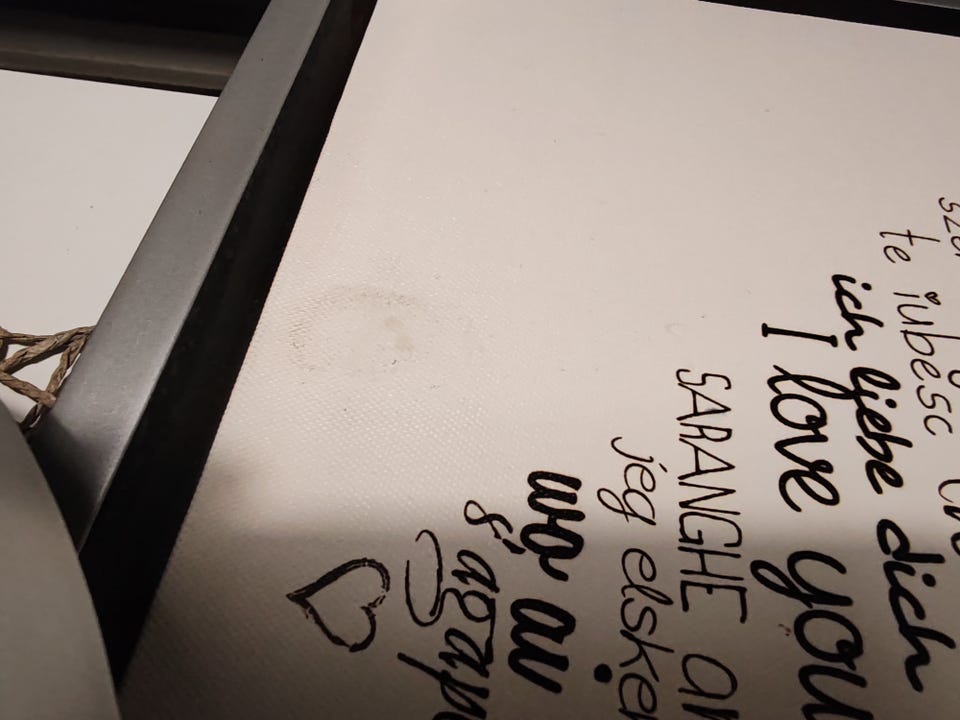 te iubesc
ich liebe dich
I love you
SARANGHE
jeg elsker
wo ai
s'agap